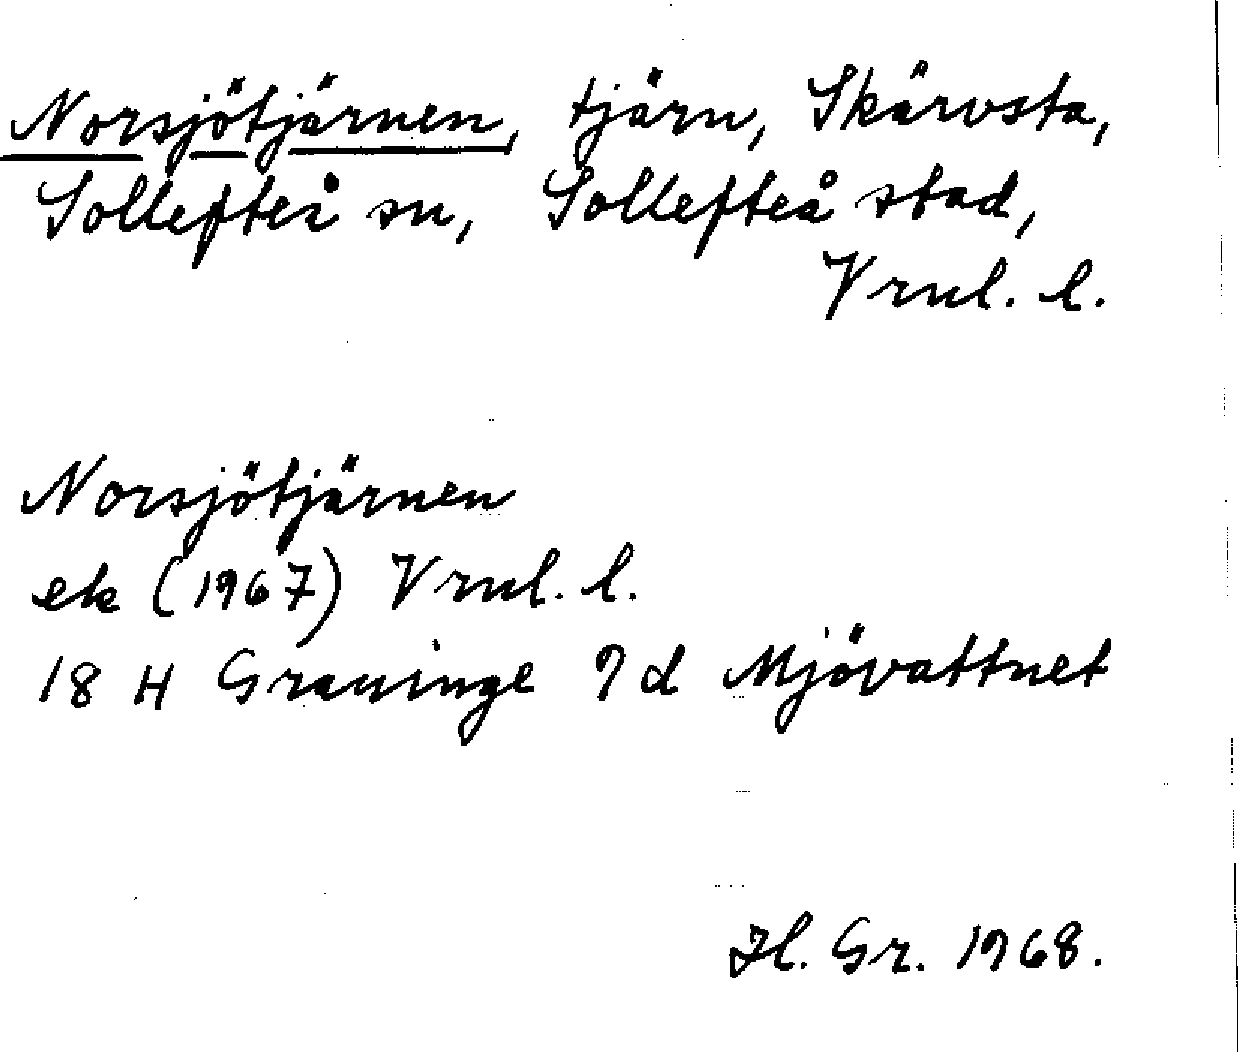 Norsjötjärnen, tjärn, Skärvsta,
Sollefteå sn, Sollefteå stad,
Vrnl. l.
Norsjötjärnen
ek (1967) Vrnl. l.
18 H Graninge 9 d Mjövattnet
Hl. Gr. 1968.